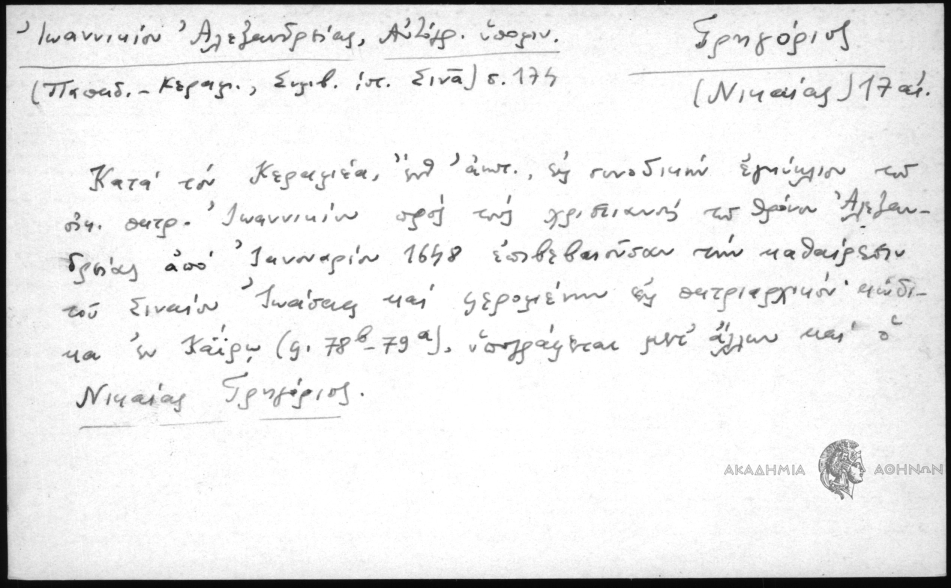 Ἰωαννικίου Ἀλεξανδρείας, Αὐτόγρ. ὑπομν.
(Παπαδ. - Κεραμ., Συμβ. ἱστ. Σινᾶ) σ. 174
Γρηγόριος
(Νικαίας) 17 αἰ.
Κατά τόν Κεραμέα, ἔνθ' ἀπτ., εἰς συνοδικήν ἐγκύκλιον τοῦ
οἰκ. πατρ. Ἰωαννικίου πρός τούς χριστιανούς τοῦ θρόνου Ἀλεξαν-
δρείας ἀπό Ἰανουαρίου 1648 ἐπιβεβαιοῦσαν τήν καθαίρεσιν
τοῦ Σιναΐου Ἰωάσαφ καί φερομένην εἰς πατριαρχικόν κώδι-
κα ἐν Καΐρῳ (φ. 78β - 79α), ὑπογράφεται μετ' ἄλλων καί ὁ
Νικαίας Γρηγόριος.
ΑΚΑΔΗΜΙΑ ΑΘΗΝΩΝ